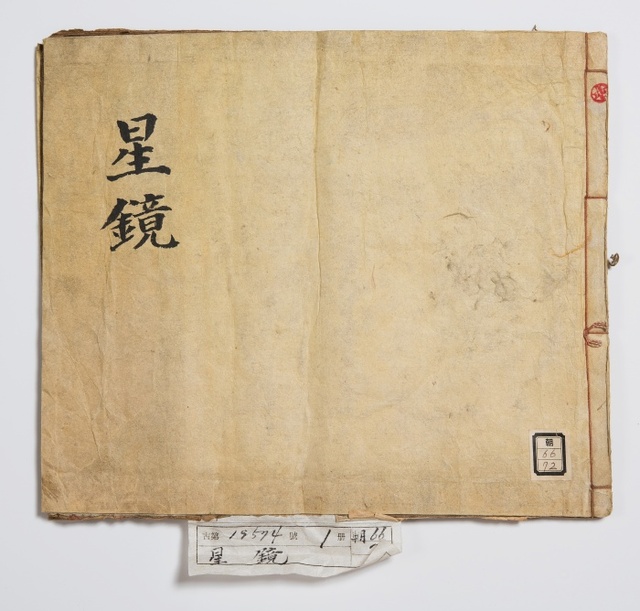 星鏡
朝
66
72
古第 19574 號 1 册 朝66
星 鏡